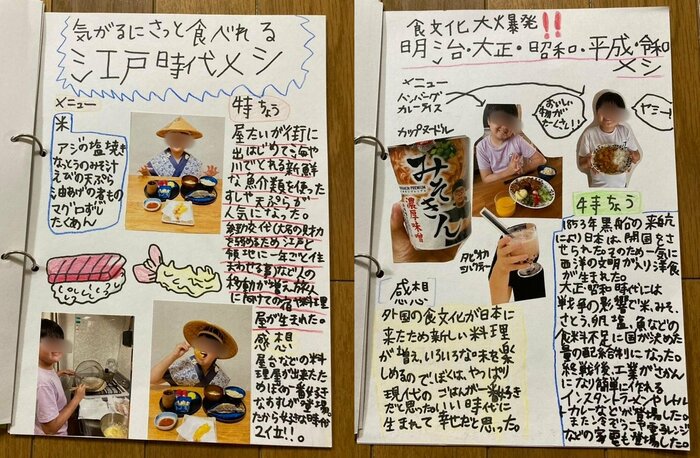 気がるにさっと食べれる
江戸時代メシ
メニュー
米
アジの塩焼き
なっとうのみそ汁
えびの天ぷら
油あげの煮もの
マグロずし
たくあん
特ちょう
屋たいが街に
出はじめて海や
川でとれる新鮮
な魚介類を使った
すしや天ぷらが
人気になった。
参勤交代(大名の財力
を弱めるため江戸と
領地に一年ごとに住
まわせる事)などの人の
移動が増え旅人
に向けての宿や料理
屋が生まれた。
感想
屋台などの料
理屋が出来たた
めぼくの一番好き
なおすしが登場。
だから好きな時代
2位!!。
食文化大爆発!!
明治・大正・昭和・平成・令和
メシ
メニュー
ハンバーグ
カレーライス
カップヌードル
おいしい
物が
たーくさん!!
ヤミー!
みそきん
濃厚味噌
タピオカ
ミルクティー
特ちょう
1853年黒船の来航
により日本は開国させ
せられた。そのため一気に
西洋の文明が入り洋食
が生まれた。
大正・昭和時代には
戦争の影響で米、みそ、
さとう、卵、塩、魚などの
食料不足に国が決めた
量の配給制になった。
終戦後、工業がさかん
になり簡単に作れる
インスタントラーメンやレトル
トカレーなどが登場した。
また冷ぞうこや電子レンジ
などの家電も登場した。
感想
外国の食文化が日本に
来たため新しい料理
が増え、いろいろな味を楽
しめるのでぼくは、やっぱり
現代のごはんが一番好き
だと思った。いい時代に
生まれて幸せだと思った。